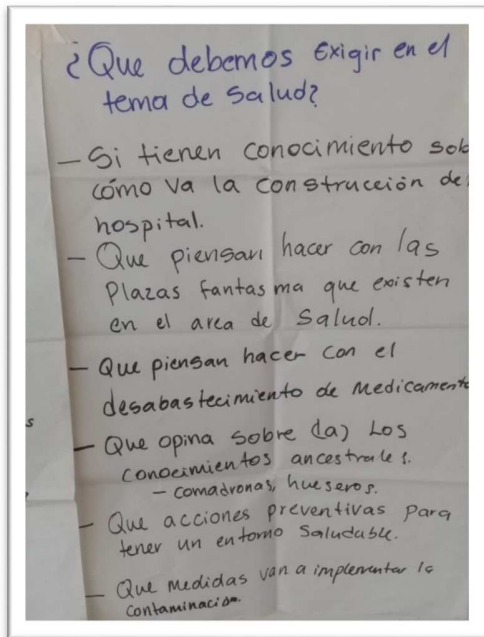 ¿Que debemos Exigir en el
tema de Salud?
- Si tienen conocimiento sob
cómo va la construcción de
hospital.
- Que piensan hacer con las
Plazas fantasma que existen
en el area de Salud.
- Que piensan hacer con el
desabastecimiento de Medicament
- Que opina sobre (la) Los
conocimientos ancestrales.
- comadronas, hueseros.
- Que acciones preventivas para
tener un entorno Saludable.
- Que Medidas van a implementar la
contaminación.
s